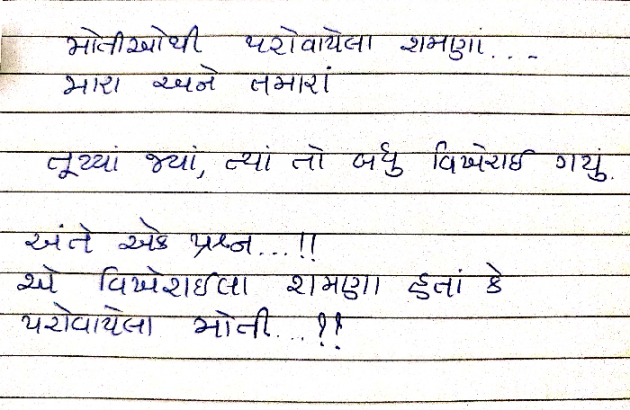 મોતીઓથી પરોવાયેલા શમણાં...
મારા અને તમારાં
તૂટ્યાં જ્યાં, ત્યાં તો બધુ વિખેરાઈ ગયું.
અંતે એક પ્રશ્ન...!!
એ વિખેરાઈલા શમણા હતાં કે
પરોવાયેલા મોતી...??